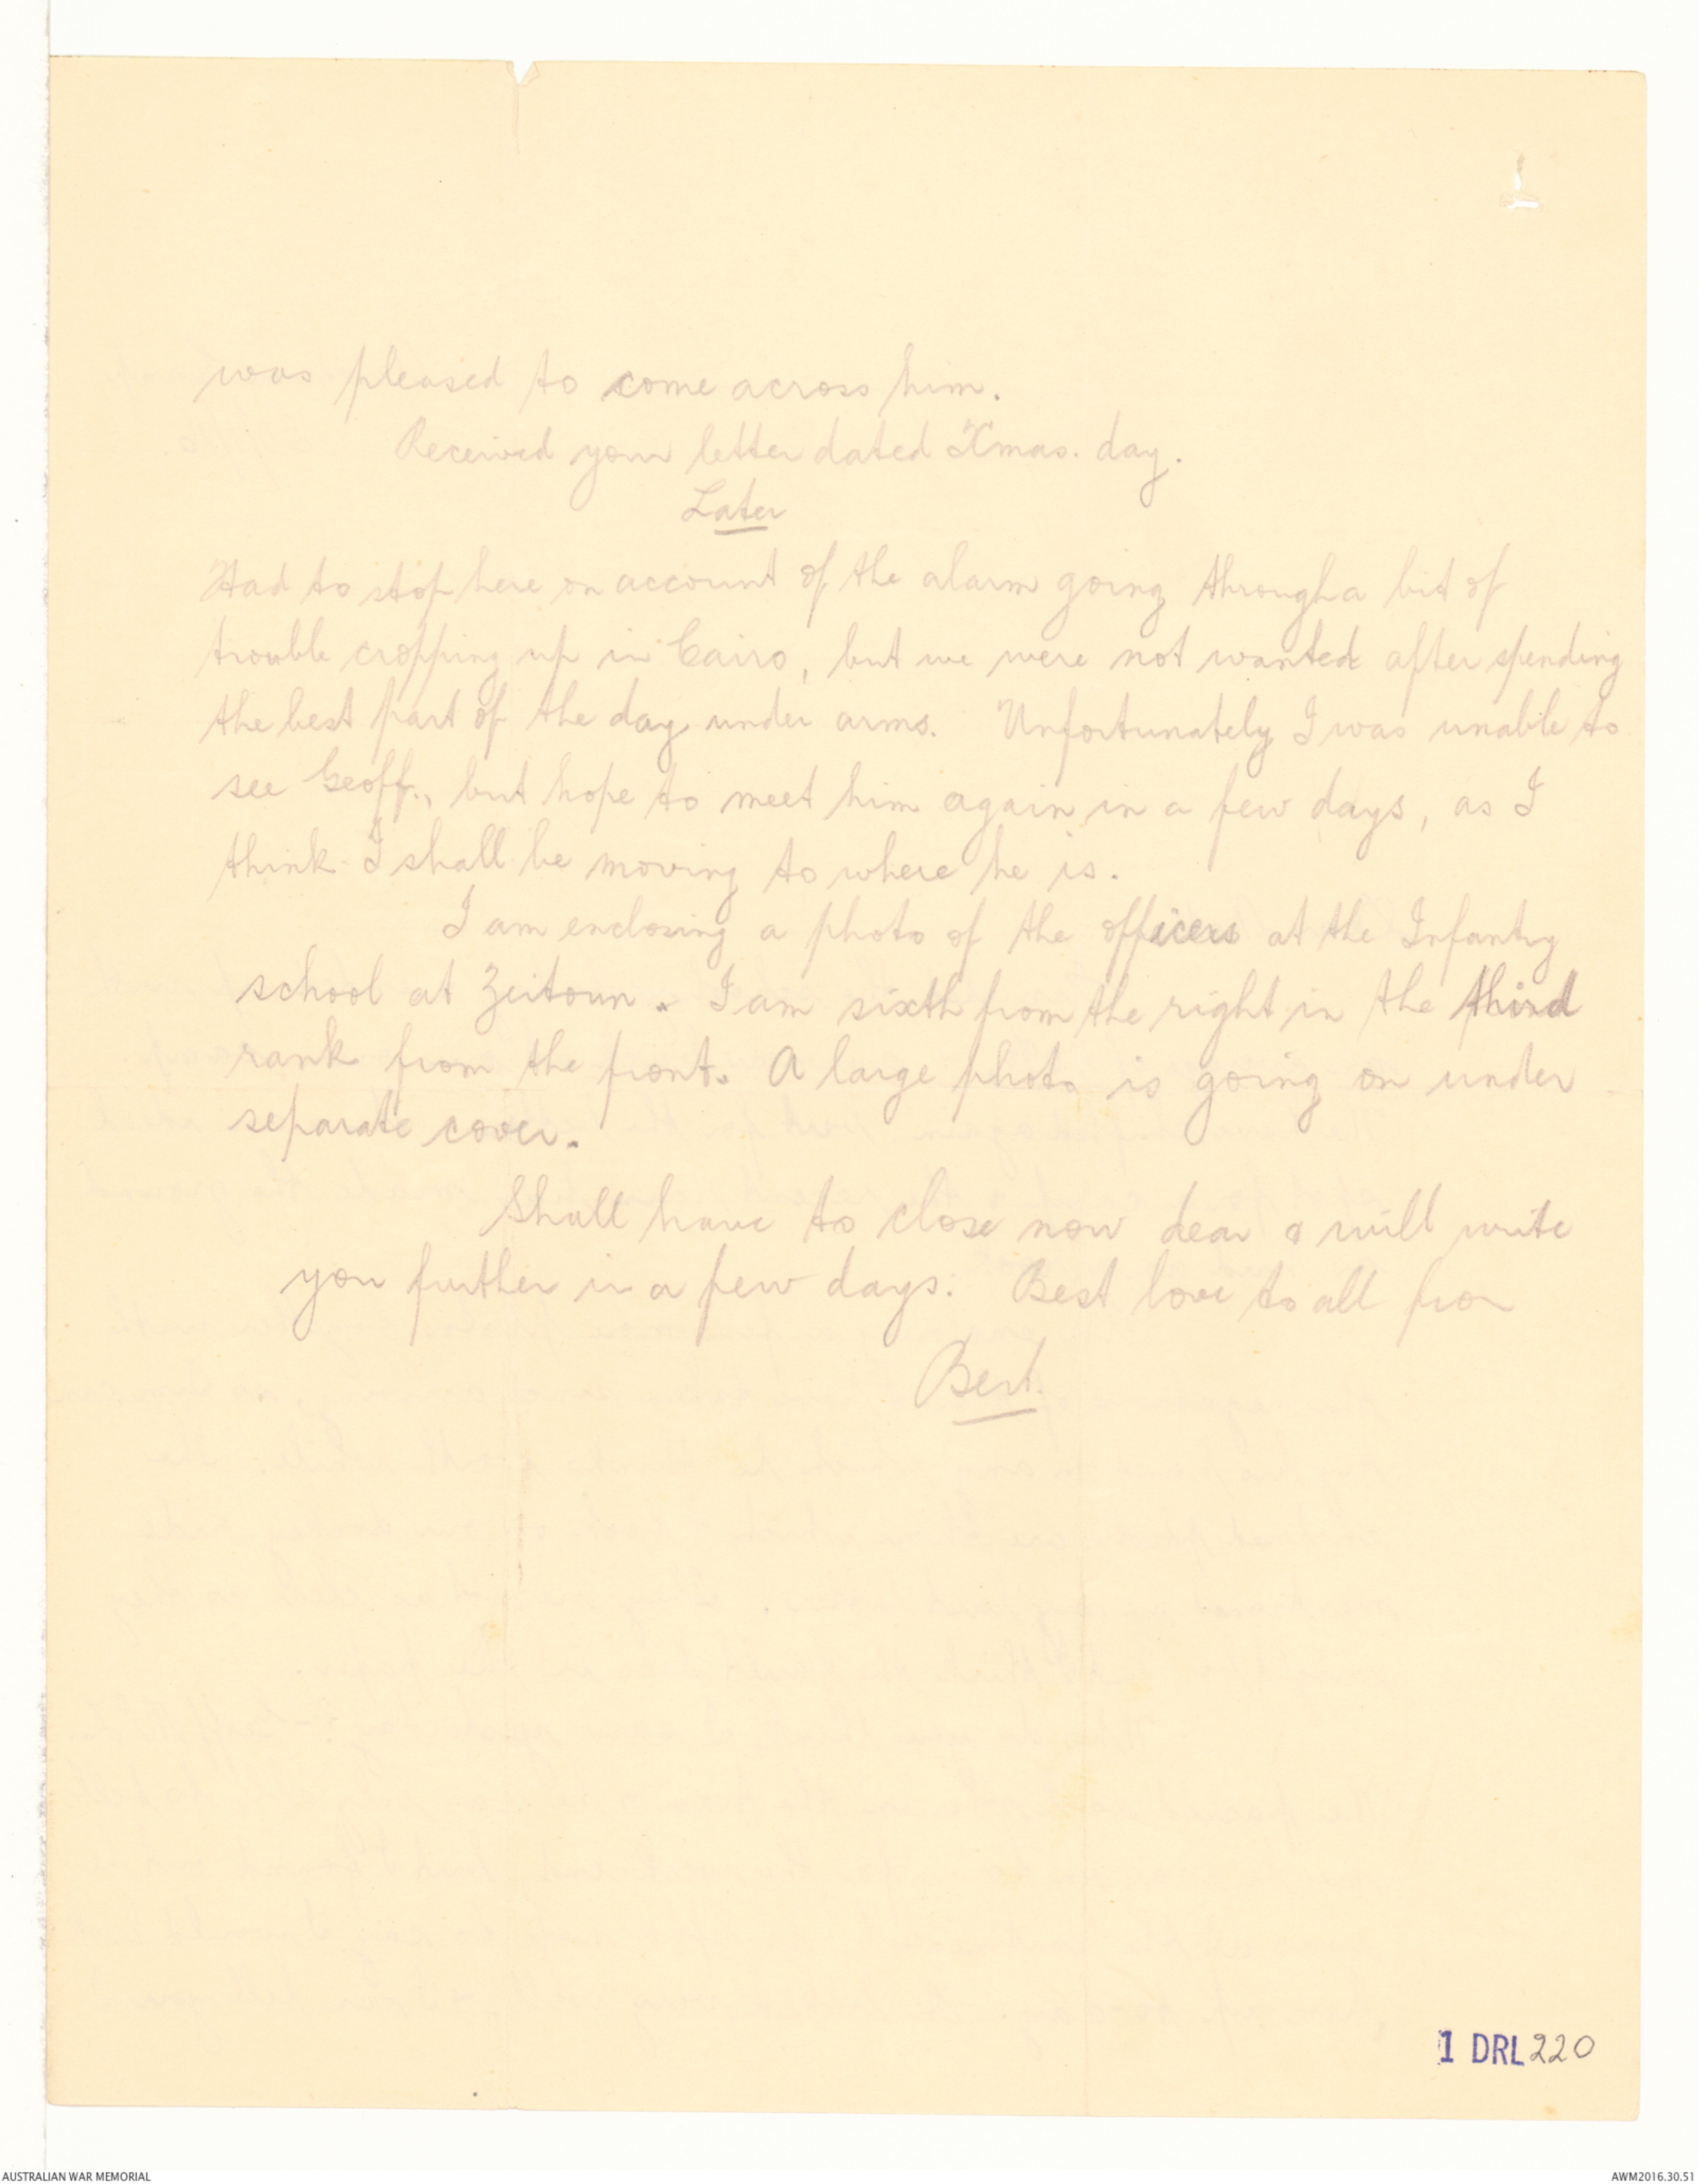 was pleased to come across him.
Received your letter dated Xmas. day.
Later
Had to stop here on account of the alarm going through a bit of
trouble cropping up in Cairo, but we were not wanted after spending
the best part of the day under arms. Unfortunately I was unable to
see Geoff., but hope to meet him again in a few days, as I
think I shall be moving to where he is.
I am enclosing a photo of the officers at the Infantry
school at Zeitoun. I am sixth from the right in the third
rank from the front. A large photo is going on under
separate cover.
Shall have to close now dear & will write
you further in a few days. Best love to all from
Bert.
1 DRL 220
AUSTRALIAN WAR MEMORIAL
AWM2016.30.51